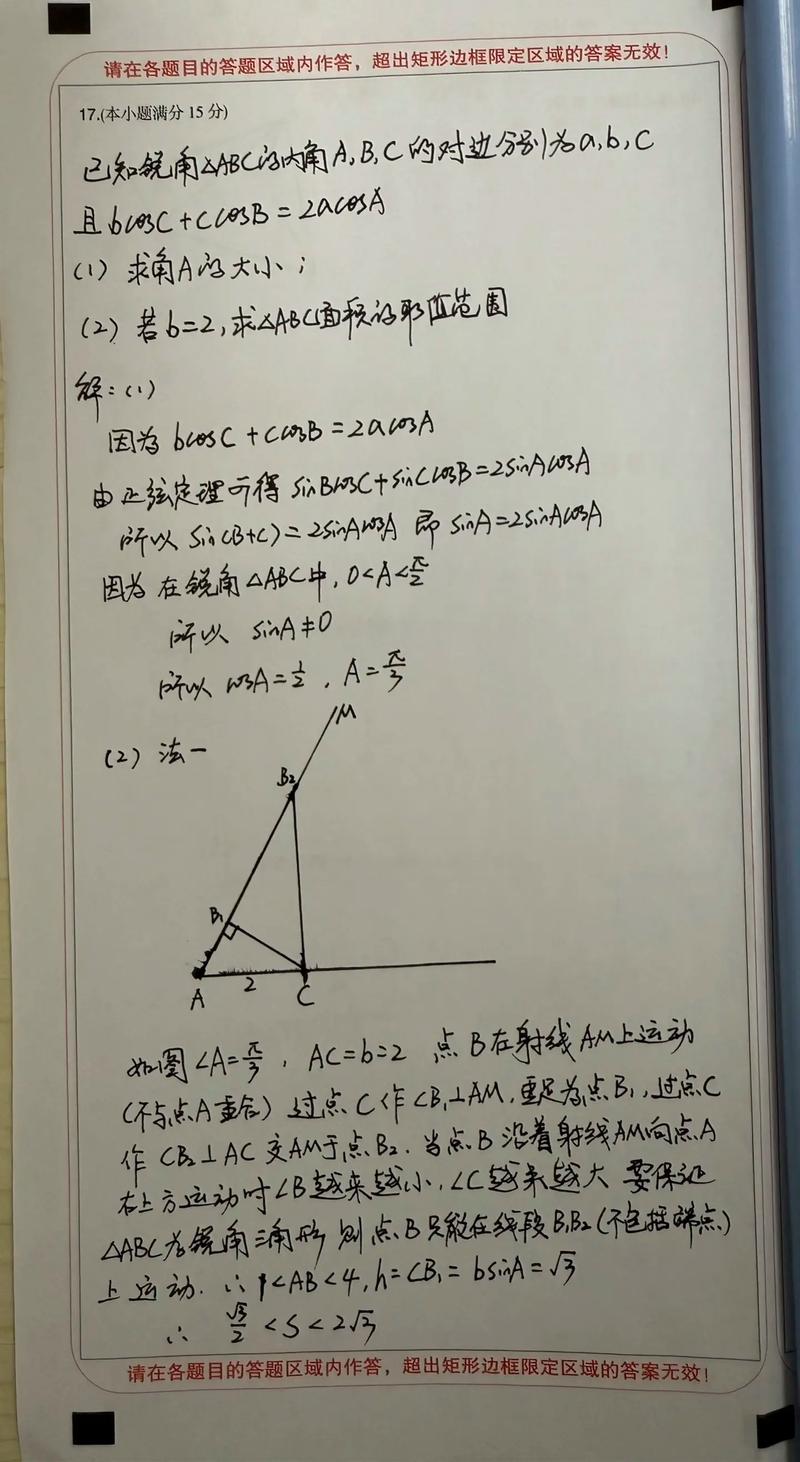 请在各题目的答题区域内作答，超出矩形边框限定区域的答案无效！
17.(本小题满分 15 分)
已知锐角△ABC的内角A,B,C的对边分别为a,b,c
且bcosC+ccosB=2acosA
(1) 求角A的大小；
(2) 若b=2,求△ABC面积的取值范围
解：(1)
因为 bcosC+ccosB=2acosA
由正弦定理可得 sinBcosC+sinCcosB=2sinAcosA
所以 sin(B+C)=2sinAcosA 即 sinA=2sinAcosA
因为在锐角△ABC中，0<A<π/2
所以 sinA≠0
所以 cosA=1/2，A=π/3
(2) 法一
M
B₂
B₁
2
A
C
如图∠A=π/3，AC=b=2 点B在射线AM上运动
(不与点A重合) 过点C作CB₁⊥AM，垂足为点B₁，过点C
作 CB₂⊥AC 交AM于点B₂. 当点B沿着射线AM向点A
右上方运动时∠B越来越小，∠C越来越大 要保证
△ABC为锐角三角形 则点B只能在线段B₁B₂(不包括端点)
上运动. ∴ 1<AB<4，h=CB₁=bsinA=√3
∴ √3/2<S<2√3
请在各题目的答题区域内作答，超出矩形边框限定区域的答案无效！